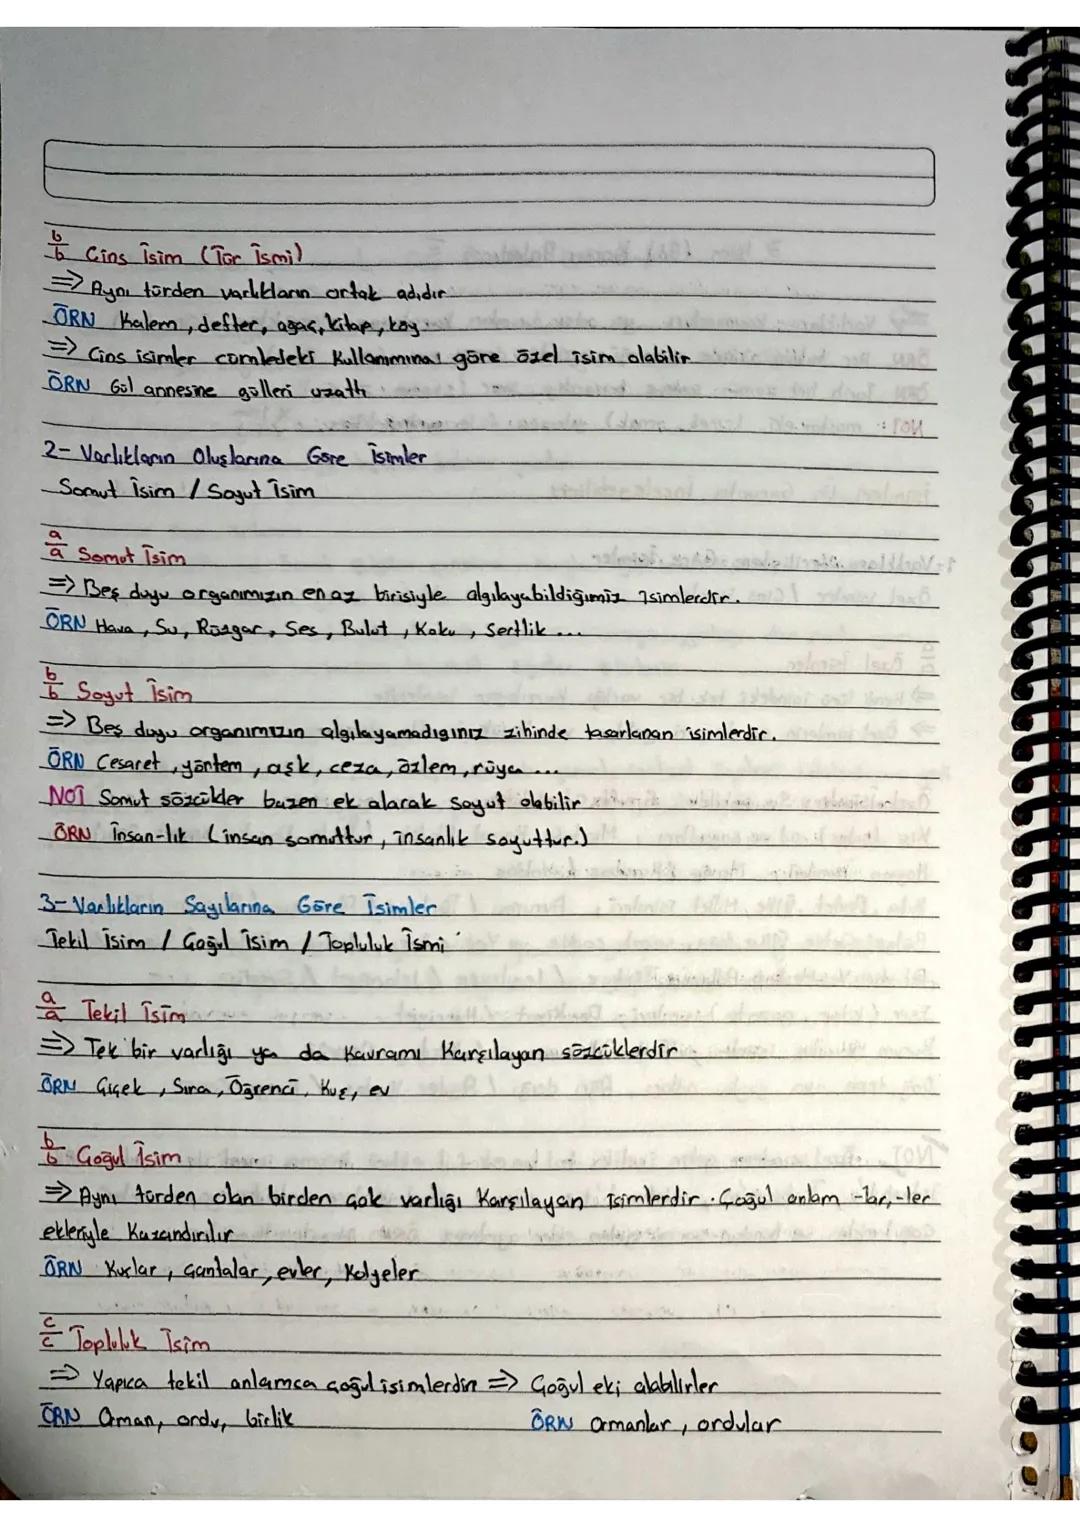 b/b Cins İsim (Tür İsmi)
=> Aynı türden varlıkların ortak adıdır
ÖRN Kalem, defter, agaç, kitap, köy
=> Cins isimler cümledeki Kullanımına göre özel isim olabilir
ÖRN Gül annesine gülleri uzattı
2- Varlıkların Oluşlarına Göre İsimler
Somut İsim / Soyut İsim
a/a Somut İsim
=> Beş duyu organımızın en az birisiyle algılayabildiğimiz isimlerdir.
ÖRN Hava, Su, Rüzgar, Ses, Bulut, Koku, Sertlik ...
b/b Soyut İsim
=> Beş duyu organımızın algılayamadıgınız zihinde tasarlanan isimlerdir.
ÖRN Cesaret, yöntem, aşk, ceza, özlem, rüya ...
NOT Somut sözcükler bazen ek alarak soyut olabilir
ÖRN İnsan-lık (insan somuttur, insanlık soyuttur.)
3- Varlıkların Sayılarına Göre İsimler
Tekil İsim / Çoğul İsim / Topluluk İsmi
a/a Tekil İsim
=> Tek bir varlığı ya da Kavramı Karşılayan sözcüklerdir
ÖRN Çiçek, Sıra, Öğrenci, Kuş, ev
b/b Çoğul İsim
=> Aynı türden olan birden çok varlığı Karşılayan isimlerdir. Çoğul anlam -lar, -ler
ekleriyle Kazandırılır
ÖRN Kuşlar, Çantalar, evler, Kolyeler
c/c Topluluk İsim
=> Yapıca tekil anlamca çoğul isimlerdir => Çoğul eki alabilirler
ÖRN Orman, ordu, birlik ÖRN Ormanlar, ordular